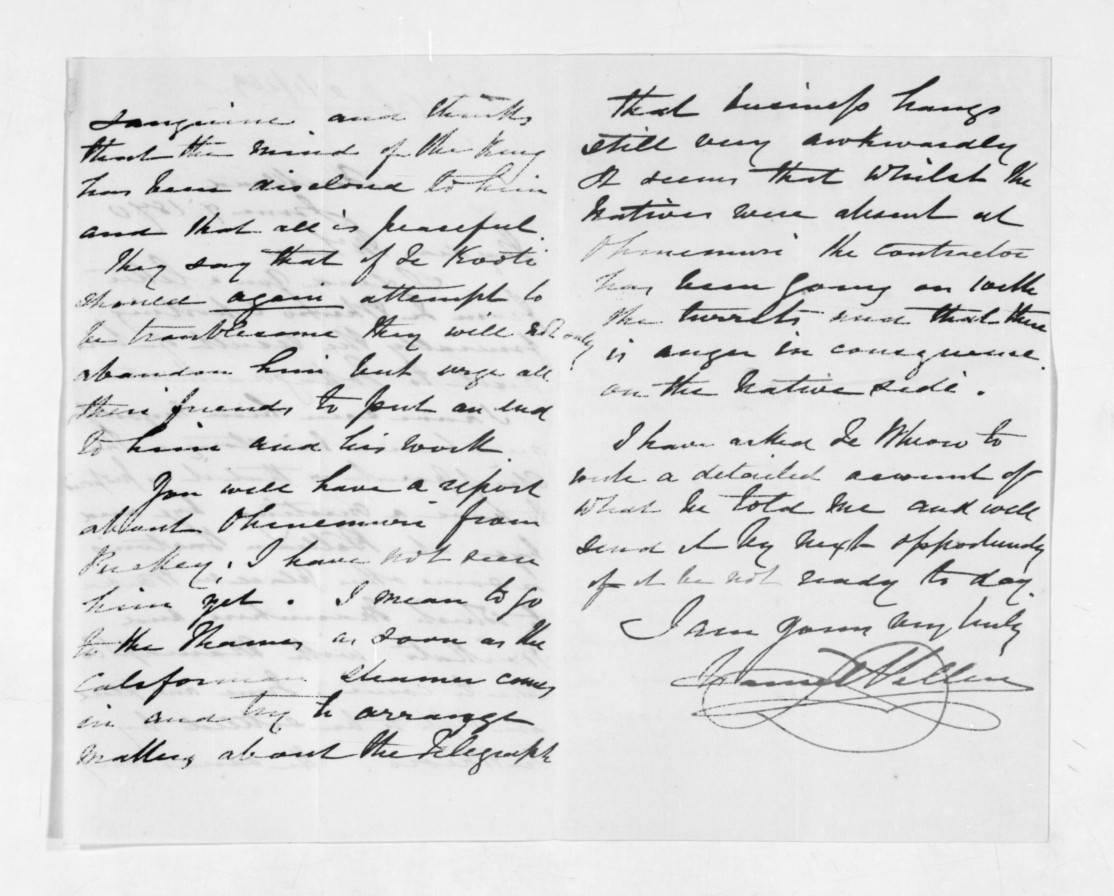 sanguine and thinks
that the mind of the King
has been disclosed to him
and that all is peaceful.
They say that if Te Kooti
should again attempt to
be troublesome they will not only
abandon him but urge all
their friends to put an end
to him and his work.
You will have a report
about Ohinemuri from
Puckey; I have not seen
him yet. I mean to go
to the Thames as soon as the
Californian steamer comes
in and try to arrange
matters about the Telegraph
that business hangs
still very awkwardly
It seems that whilst the
Natives were absent at
Ohinemuri the contractor
has been going on with
the turrets and that there
is anger in consequence
on the Native side.
I have asked Te Wheoro to
write a detailed account of
what he told me and will
send it by next opportunity
if it be not ready to day.
I am yours very truly
Daniel Pollen